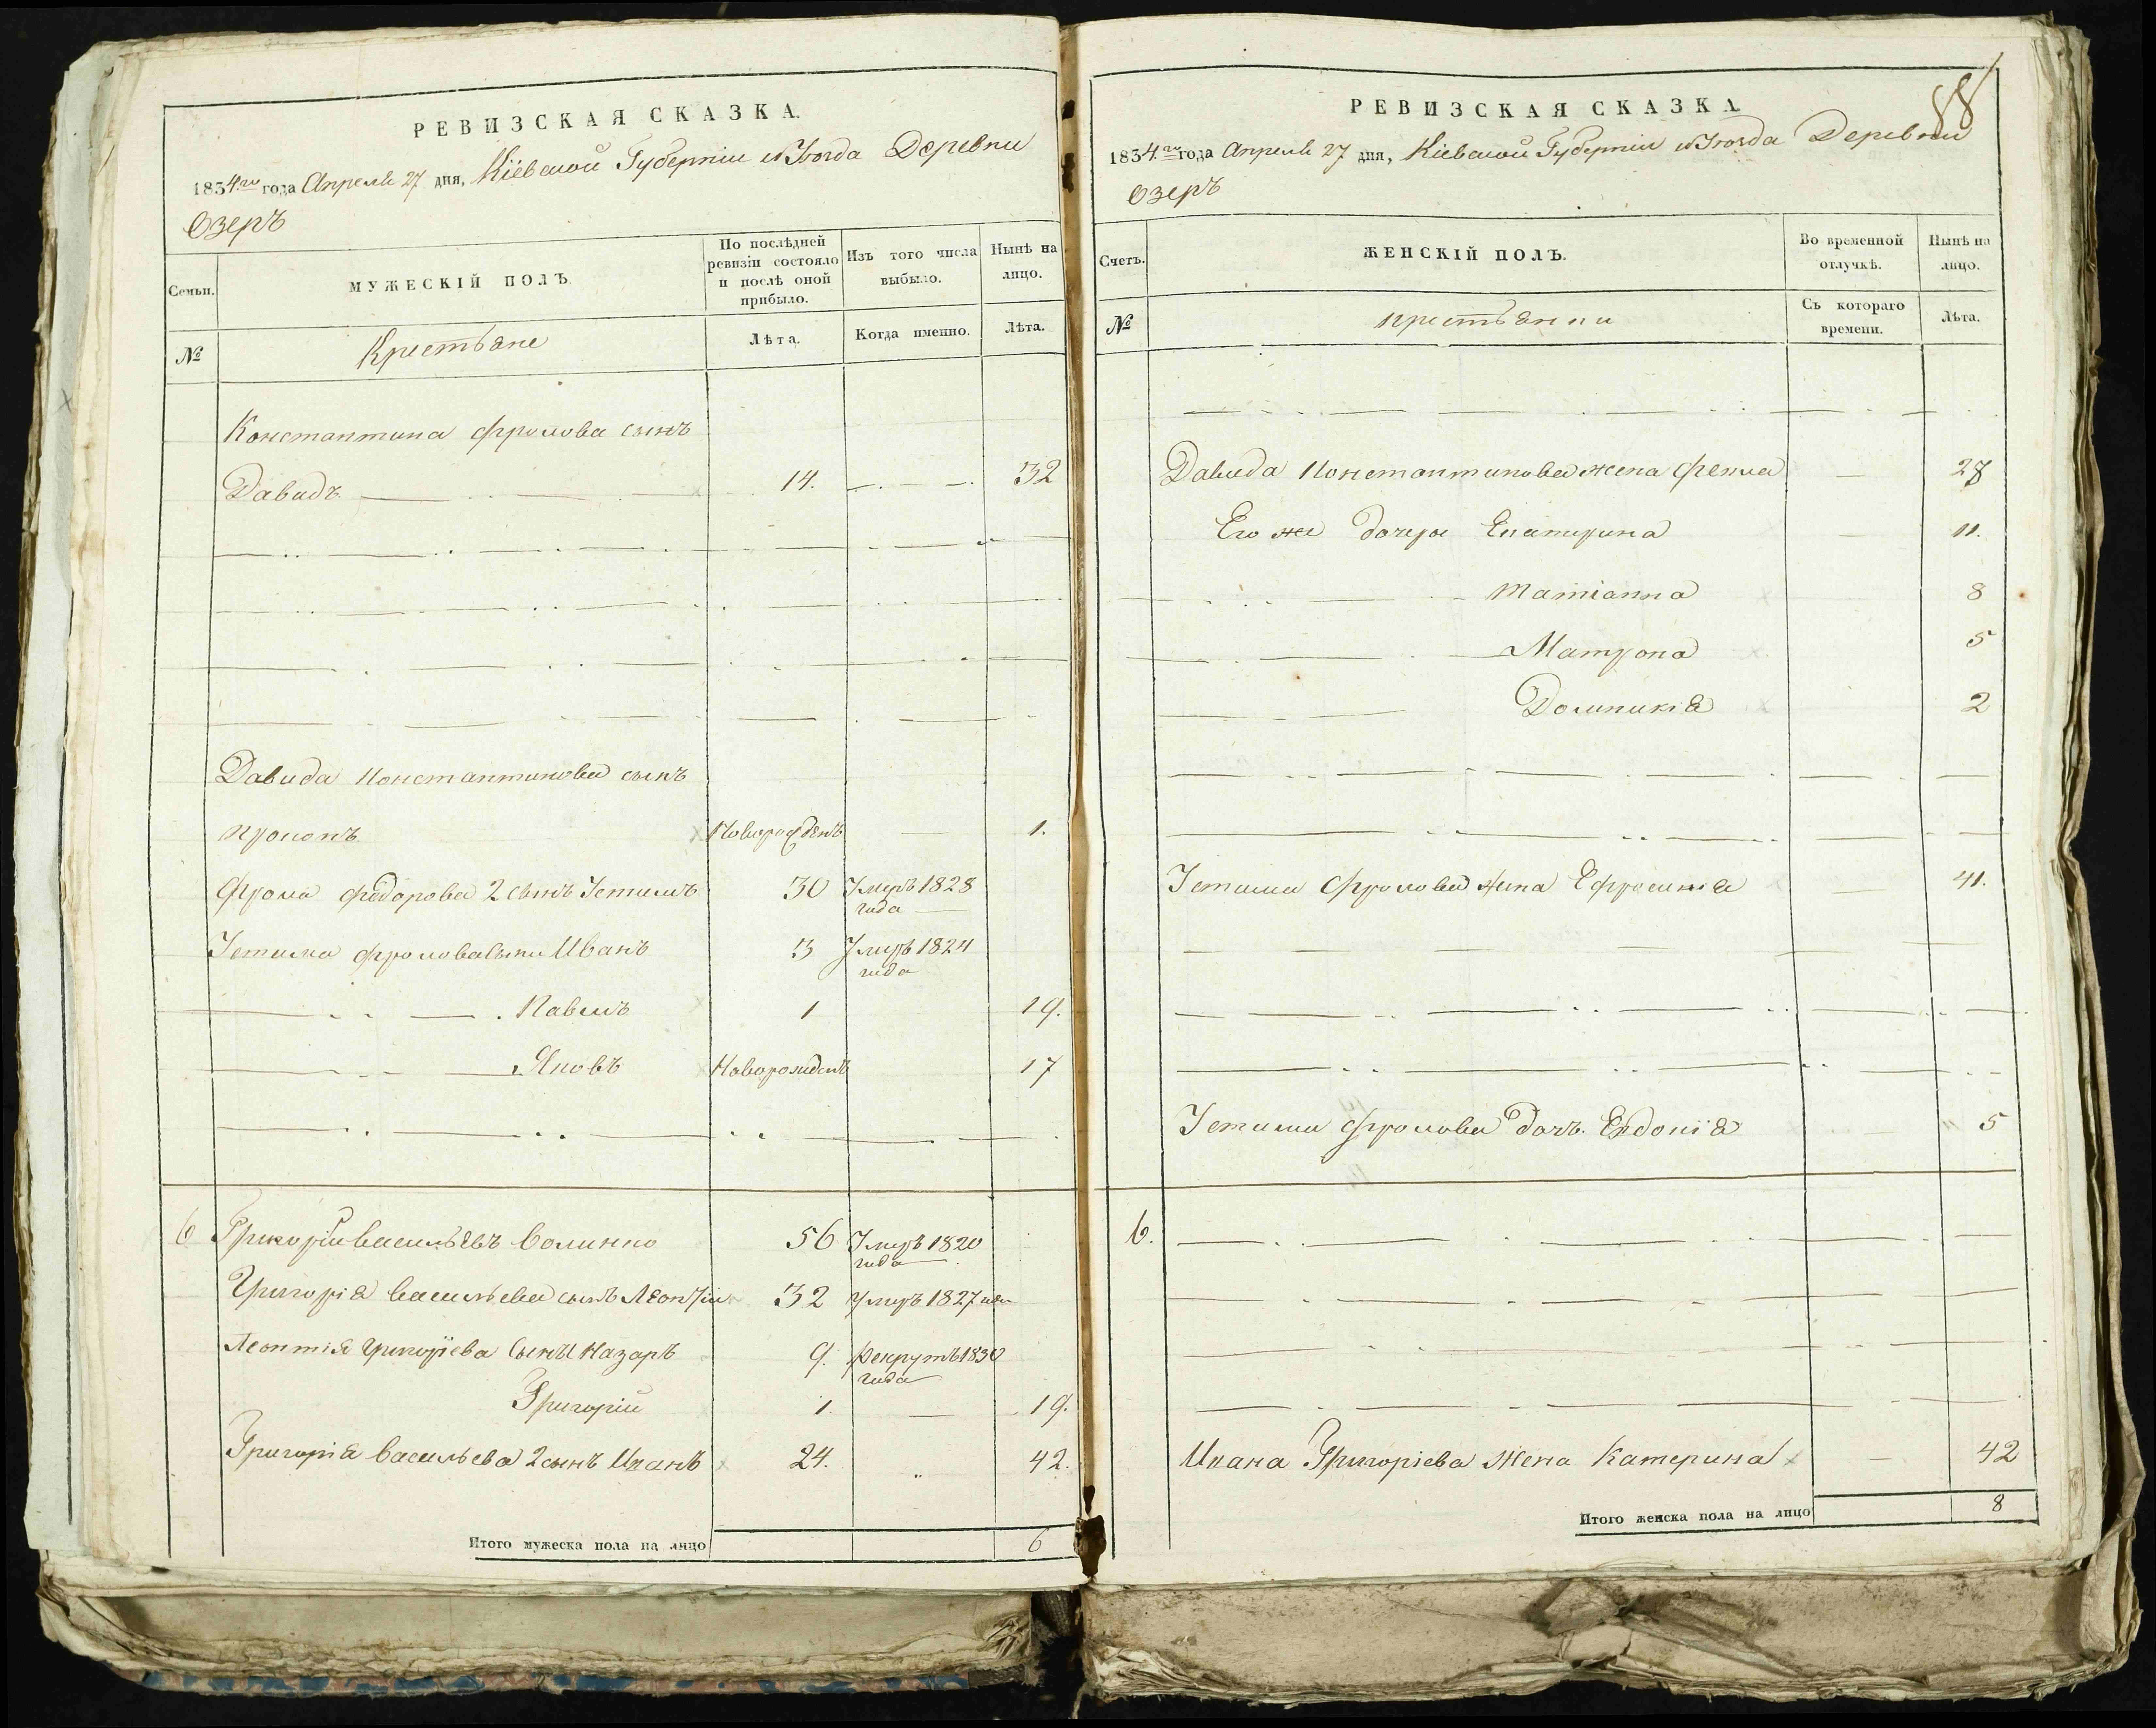 РЕВИЗСКАЯ СКАЗКА.
1834.го года Апреля 27 дня, Кіевской Губерніи и Уѣзда Деревни
Озеръ
Семьи.
МУЖЕСКІЙ ПОЛЪ.
По послѣдней ревизіи состояло и послѣ оной прибыло.
Изъ того числа выбыло.
Нынѣ на лицо.
№
Крестьяне
Лѣта.
Когда именно.
Лѣта.
Константина Фролова сынъ
Давидъ 14. 32
Давида Константинова сынъ
Прокопъ Новорожденъ 1.
Фрола Федорова 2 сынъ Устимъ 30 Умеръ 1828 года
Устима Фролова сыны Иванъ 3 Умеръ 1824 года
Павелъ 1 19.
Яковъ Новорожденъ 17
6 Григорій Васильевъ 56 Умеръ 1820 года
Григорія Васильева сынъ Леонтій 32 Умеръ 1827 года
Леонтія Григоріева сыны Назаръ 9. Рекрутъ 1830 года
Григорій 1. 19.
Григорія Васильева 2 сынъ Иванъ 24. 42.
Итого мужеска пола на лицо 6
88
РЕВИЗСКАЯ СКАЗКА
1834.го года Апреля 27 дня, Кіевской Губерніи и Уѣзда Деревни
Озеръ
Счетъ.
ЖЕНСКІЙ ПОЛЪ.
Во временной отлучкѣ.
Нынѣ на лицо.
№
Крестьянки
Съ котораго времени.
Лѣта.
Давида Константинова жена Фекла 28
Его же дочери Екатерина 11.
Татіанна 8
Матрона 5
Домникія 2
Устима Фролова жена Ефросинія 41.
Устима Фролова дочь Евдокія 5
6.
Ивана Григоріева жена Катерина 42
Итого женска пола на лицо 8